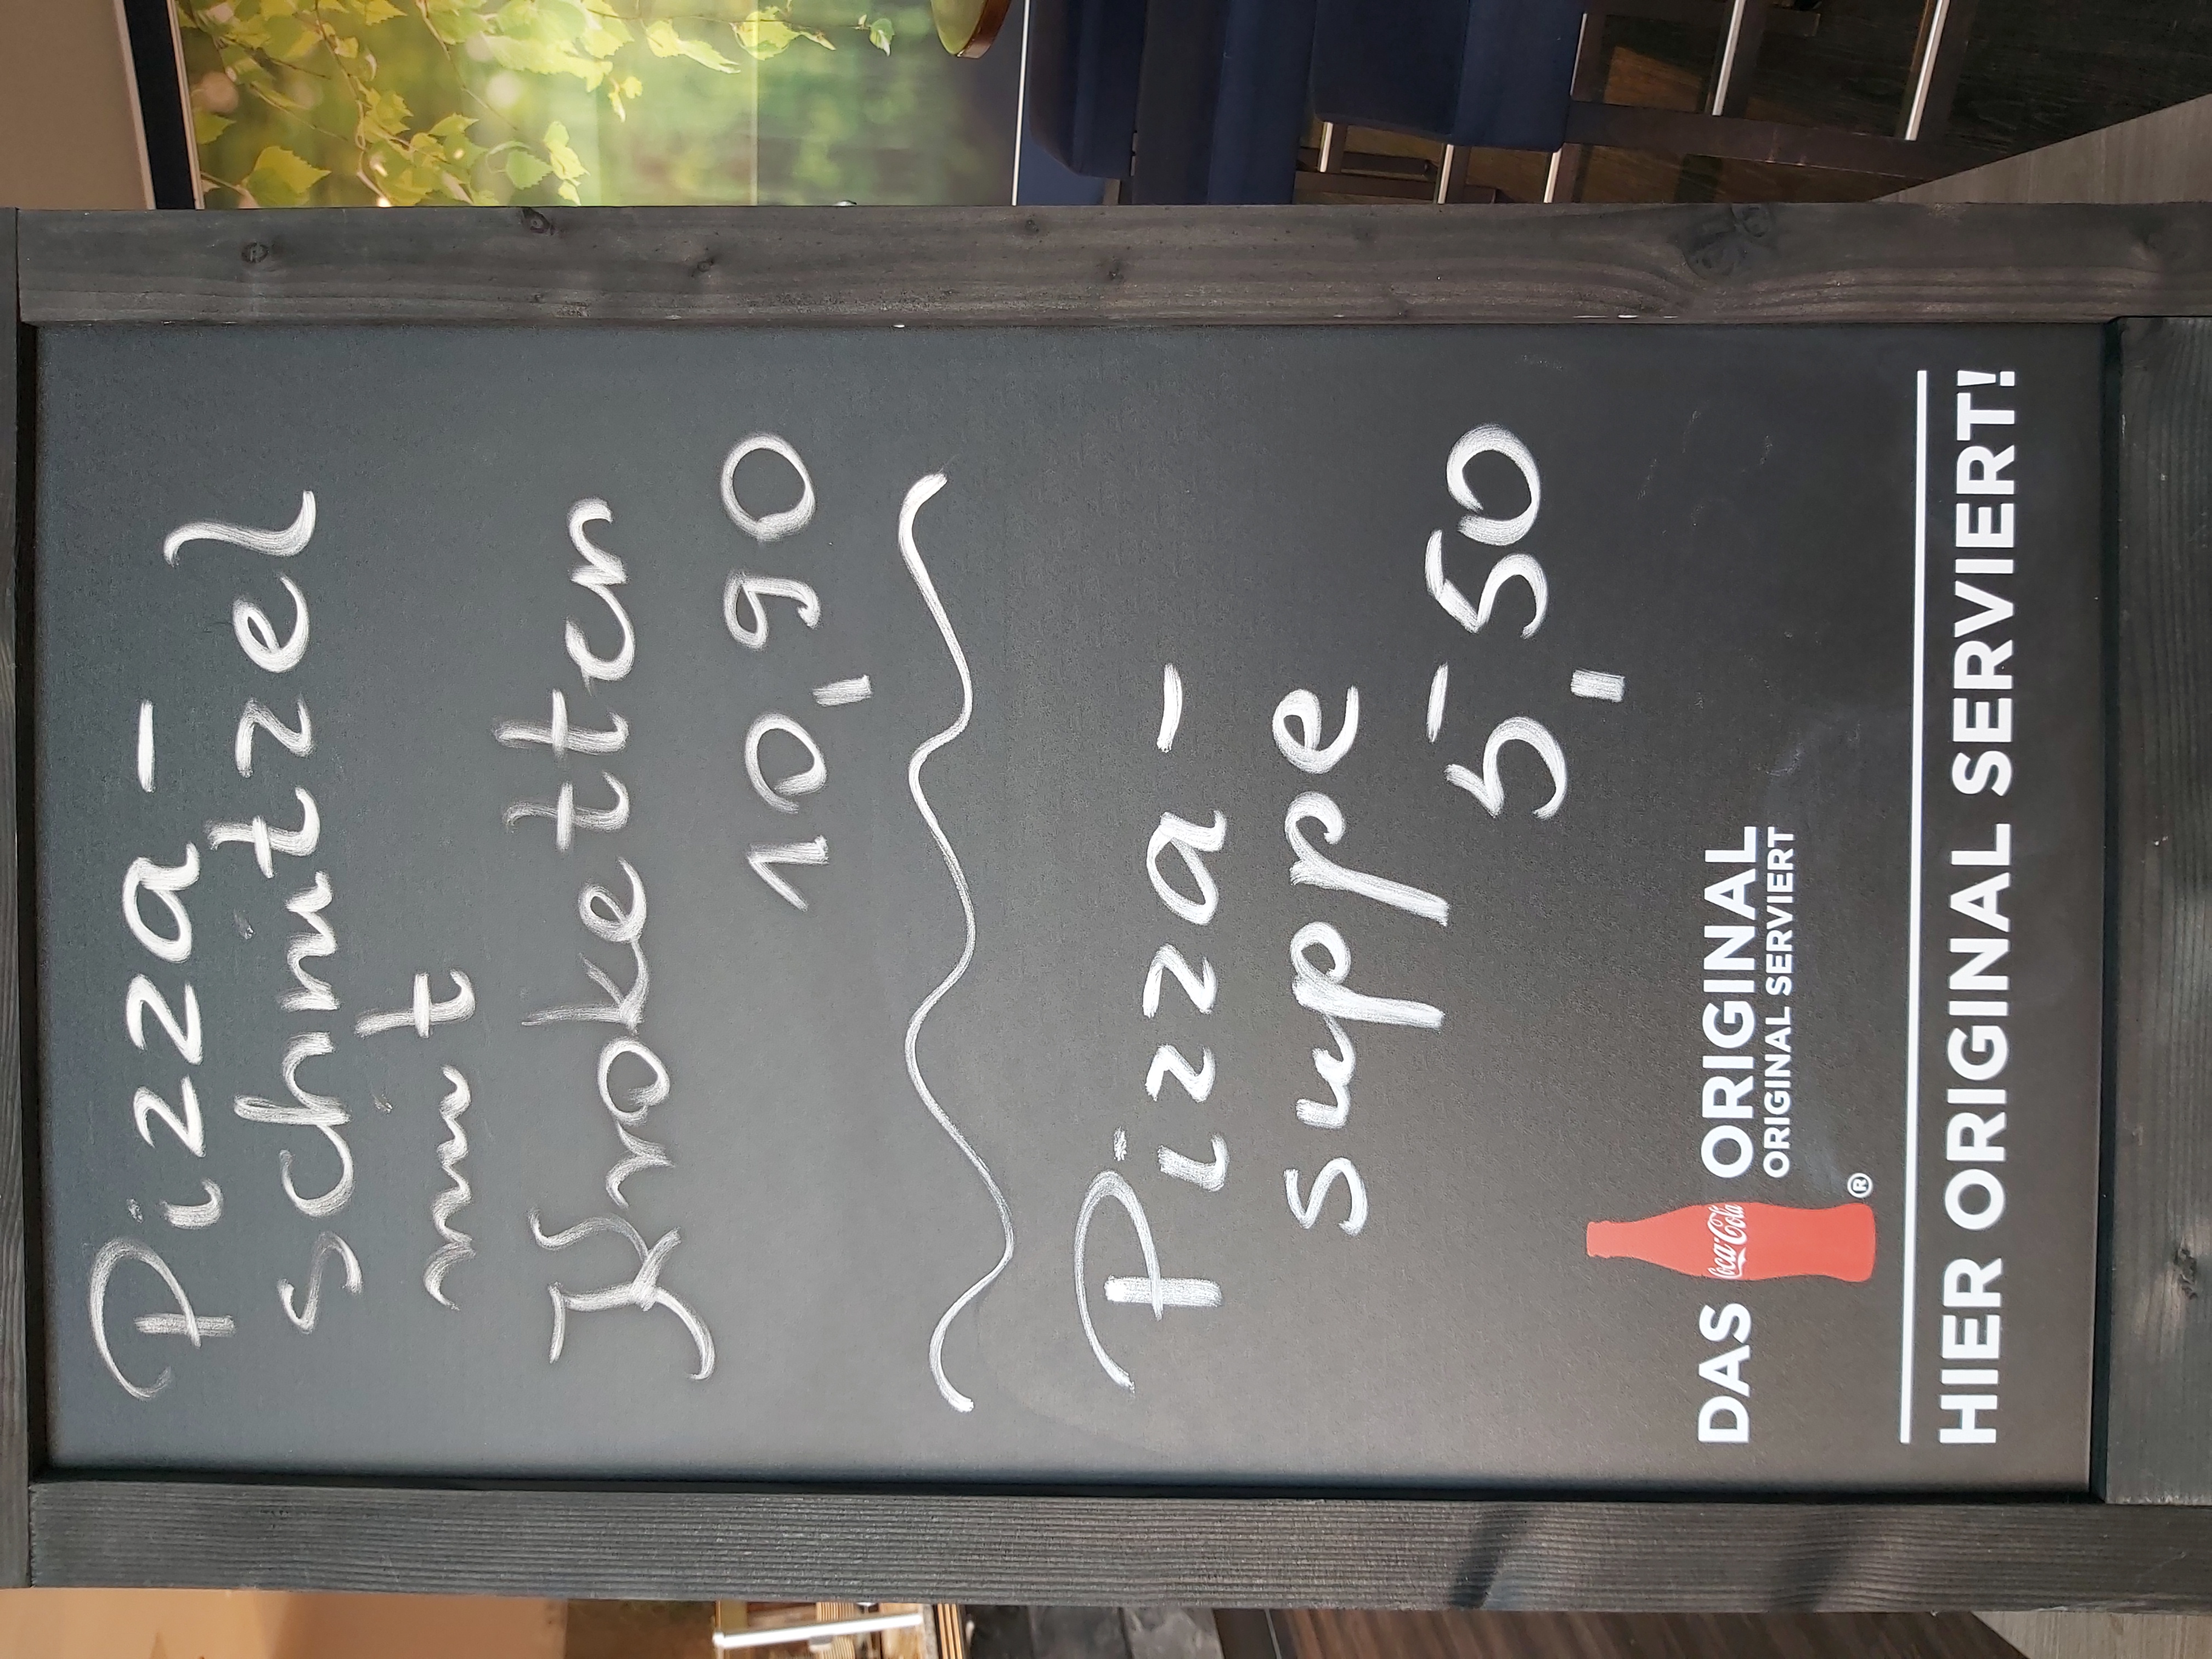 Pizza-
schnitzel
mit
Kroketten
10,90
Pizza-
suppe
5,50
DAS Coca-Cola ORIGINAL
ORIGINAL SERVIERT
®
HIER ORIGINAL SERVIERT!